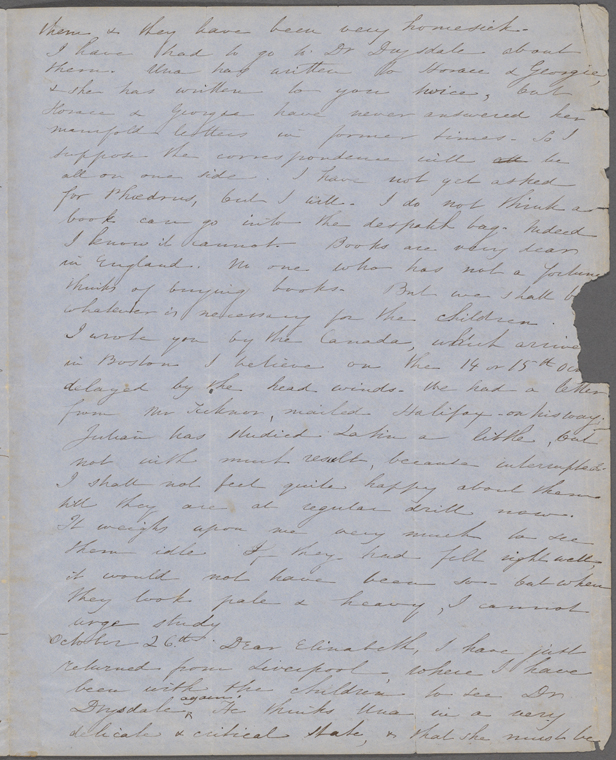 them, & they have been very homesick.
I have had to go to Dr Drysdale about
them. Una has written to Horace & Georgie,
& she has written to you twice, but
Horace & Georgie have never answered her
manifold letters in former times. So I
suppose the correspondence will be
all on one side. I have not yet asked
for Phaedrus, but I will. I do not think a
book can go into the despatch bag. Indeed
I know it cannot. Books are very dear
in England. No one who has not a fortune
thinks of buying books. But we shall b
whatever is necessary for the children.
I wrote you by the Canada, which arrive
in Boston I believe on the 14 or 15th
delayed by the head winds. We had a letter
from Mr Ticknor, mailed Halifax - on his way.
Julian has studied Latin a little, but
not with much result, because interrupted.
I shall not feel quite happy about them
till they are at regular drill now.
It weighs upon me very much to see
them idle. If they had felt right well
it would not have been so. But when
they look pale & heavy, I cannot
urge study.
October 26th. Dear Elizabeth, I have just
returned from Liverpool, where I have
been with the children to see Dr
Drysdale again. He thinks Una in a very
delicate & critical state, & that she must be